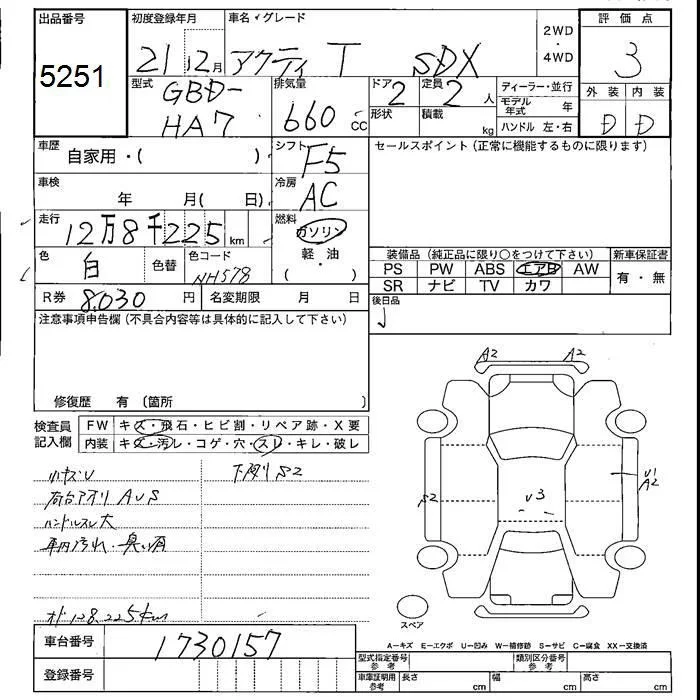 出品番号
5251
初度登録年月
21 12月
車名・グレード
アクティ T SDX
2WD
・
4WD
評価点
3
型式
GBD-
HA7
排気量
660 CC
ドア
2
形状
定員
2 人
積載
kg
ディーラー・並行
モデル年式 年
ハンドル 左・右
外装 内装
D D
車歴
自家用・( )
シフト
F5
車検
年 月( 日)
冷房
AC
走行
12万8千225 km
燃料
ガソリン
・
軽油
( )
色
白
色替
色コード
NH578
R券 8,030 円
名変期限 月 日
セールスポイント(正常に機能するものに限ります)
装備品(純正品に限り○をつけて下さい)
PS PW ABS エアB AW
SR ナビ TV カワ
新車保証書
有・無
後日品
注意事項申告欄(不具合内容等は具体的に記入して下さい)
修復歴 有(箇所 )
検査員
記入欄
FW キズ・飛石・ヒビ割・リペア跡・X要
内装 キズ・汚レ・コゲ・穴・スレ・キレ・破レ
小キズU
下廻りS2
荷台アオリ AUS
ハンドルスレ大
車内汚れ・臭い有
オド128,225km
A2 A2
S2
U3
U1
A2
スペア
A−キズ E−エクボ U−凹み W−補修跡 S−サビ C−腐食 XX−交換済
車台番号
1730157
登録番号
型式指定番号
参考
類別区分番号
参考
車庫証明用
参考
長さ cm
幅 cm
高さ cm